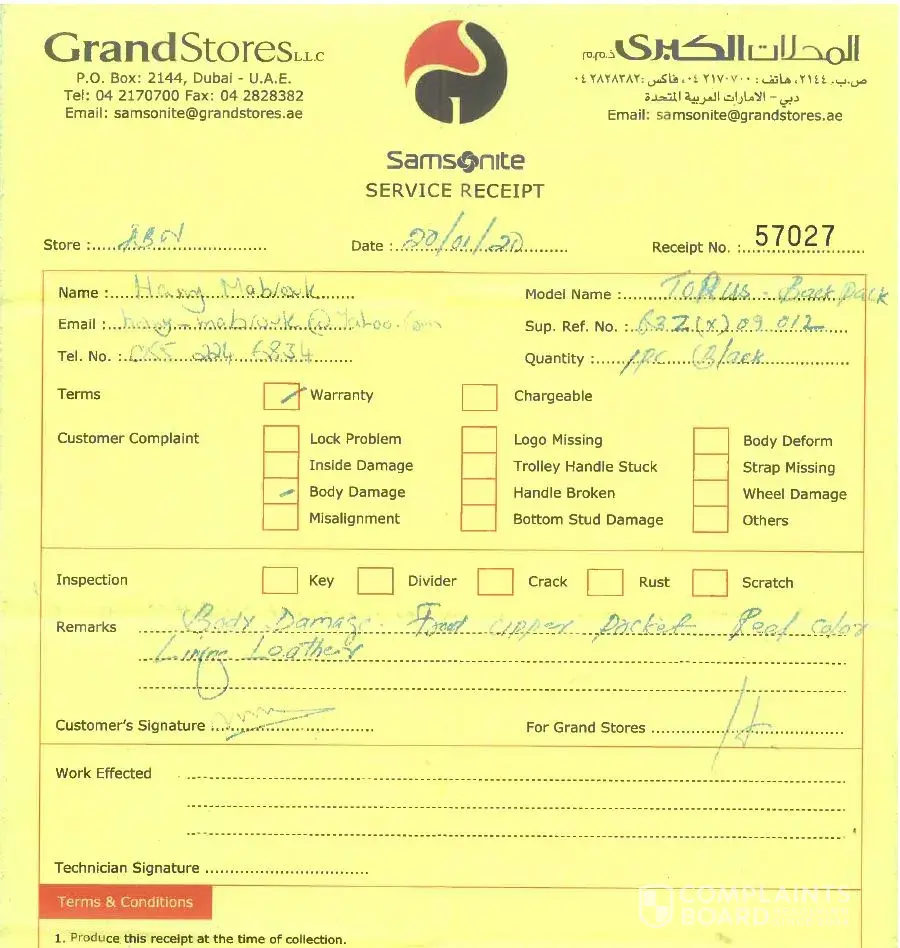 GrandStores LLC
P.O. Box: 2144, Dubai - U.A.E.
Tel: 04 2170700 Fax: 04 2828382
Email: samsonite@grandstores.ae
المحلات الكبرى ذ.م.م
ص.ب. ٢١٤٤، هاتف: ٢١٧٠٧٠٠ ٠٤، فاكس: ٢٨٢٨٣٨٢ ٠٤
دبي - الامارات العربية المتحدة
Email: samsonite@grandstores.ae
Samsonite
SERVICE RECEIPT
Store : Date : 20/01/20 Receipt No. : 57027
Name : Hany Mabrouk Model Name : TORUS - BackPack
Email : hany-mabrouk@Yahoo.Com Sup. Ref. No. : 63Z(x)09 012
Tel. No. : 055 224 6834 Quantity : 1PC Black
Terms Warranty Chargeable
Customer Complaint Lock Problem Logo Missing Body Deform
Inside Damage Trolley Handle Stuck Strap Missing
Body Damage Handle Broken Wheel Damage
Misalignment Bottom Stud Damage Others
Inspection Key Divider Crack Rust Scratch
Remarks Body Damage. upper packet Peel color
Lining Leather
Customer's Signature For Grand Stores
Work Effected
Technician Signature
Terms & Conditions
1. Produce this receipt at the time of collection.
COMPLAINTS
BOARD